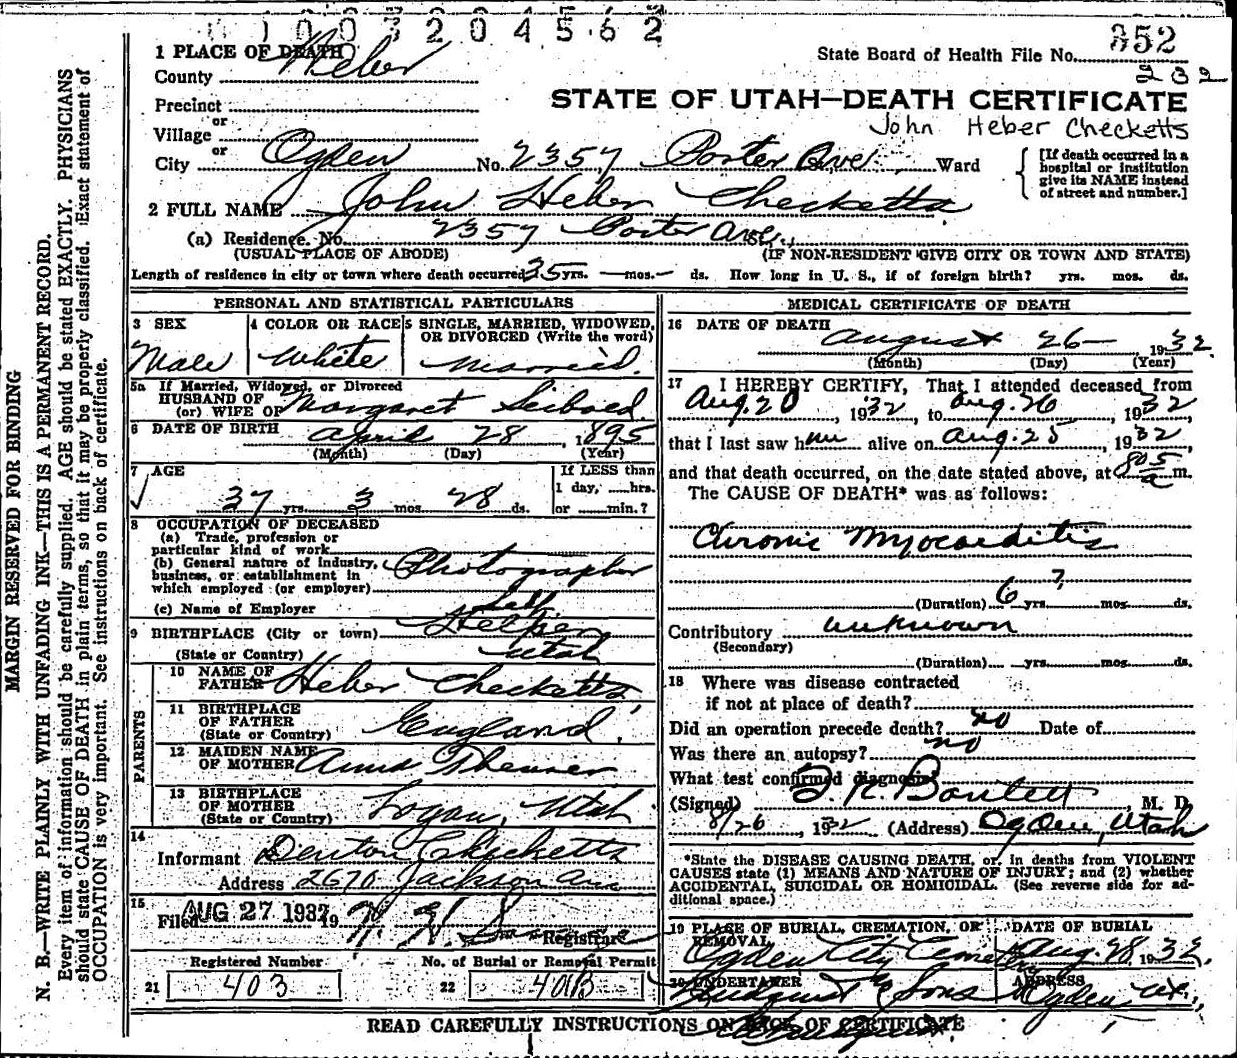 1003204562
1 PLACE OF DEATH
County Weber
State Board of Health File No. 352
232
Precinct
or
Village
or
STATE OF UTAH—DEATH CERTIFICATE
John Heber Checketts
City Ogden No. 2357 Porter Ave. Ward
[If death occurred in a hospital or institution give its NAME instead of street and number.]
2 FULL NAME John Heber Checketts
(a) Residence. No. 2357 Porter Ave.
(USUAL PLACE OF ABODE) (IF NON-RESIDENT GIVE CITY OR TOWN AND STATE)
Length of residence in city or town where death occurred 35 yrs. — mos. — ds. How long in U. S., if of foreign birth? yrs. mos. ds.
MARGIN RESERVED FOR BINDING
N. B.—WRITE PLAINLY WITH UNFADING INK—THIS IS A PERMANENT RECORD.
Every item of information should be carefully supplied. AGE should be stated EXACTLY. PHYSICIANS
should state CAUSE OF DEATH in plain terms, so that it may be properly classified. Exact statement of
OCCUPATION is very important. See instructions on back of certificate.
PERSONAL AND STATISTICAL PARTICULARS
3 SEX
Male
4 COLOR OR RACE
White
5 SINGLE, MARRIED, WIDOWED,
OR DIVORCED (Write the word)
Married.
5a If Married, Widowed, or Divorced
HUSBAND OF
(or) WIFE OF Margaret
6 DATE OF BIRTH April 28, 1895
(Month) (Day) (Year)
7 AGE
37 yrs. 3 mos. 28 ds.
If LESS than
1 day, ......hrs.
or ......min.?
8 OCCUPATION OF DECEASED
(a) Trade, profession or
particular kind of work
(b) General nature of industry,
business, or establishment in
which employed (or employer) Photographer
(c) Name of Employer Self
9 BIRTHPLACE (City or town) Helper
(State or Country) Utah
PARENTS
10 NAME OF
FATHER Heber Checketts
11 BIRTHPLACE
OF FATHER
(State or Country) England.
12 MAIDEN NAME
OF MOTHER Anna Theurer
13 BIRTHPLACE
OF MOTHER
(State or Country) Logan, Utah
14
Informant Denton Checketts
Address 2670 Jackson Ave
15
Filed AUG 27 1932 19
Registrar
Registered Number
21 403
No. of Burial or Removal Permit
22 401B
MEDICAL CERTIFICATE OF DEATH
16 DATE OF DEATH
August 26 1932.
(Month) (Day) (Year)
17 I HEREBY CERTIFY, That I attended deceased from
Aug. 20, 1932, to Aug. 26, 1932
that I last saw him alive on Aug. 25, 1932,
and that death occurred, on the date stated above, at 8 05 a m.
The CAUSE OF DEATH* was as follows:
Chronic Myocarditis
(Duration) 6 yrs. ? mos. ds.
Contributory unknown
(Secondary)
(Duration) yrs. mos. ds.
18 Where was disease contracted
if not at place of death?
Did an operation precede death? no Date of
Was there an autopsy? no
What test confirmed diagnosis?
(Signed) Bartlett, M. D.
8/26, 1932 (Address) Ogden, Utah
*State the DISEASE CAUSING DEATH, or, in deaths from VIOLENT
CAUSES state (1) MEANS AND NATURE OF INJURY; and (2) whether
ACCIDENTAL, SUICIDAL OR HOMICIDAL. (See reverse side for ad-
ditional space.)
19 PLACE OF BURIAL, CREMATION, OR
REMOVAL
Ogden City Cemetery
DATE OF BURIAL
Aug. 28, 1932.
20 UNDERTAKER
Lindquist & Sons
ADDRESS
Ogden, Ut.,
READ CAREFULLY INSTRUCTIONS ON BACK OF CERTIFICATE